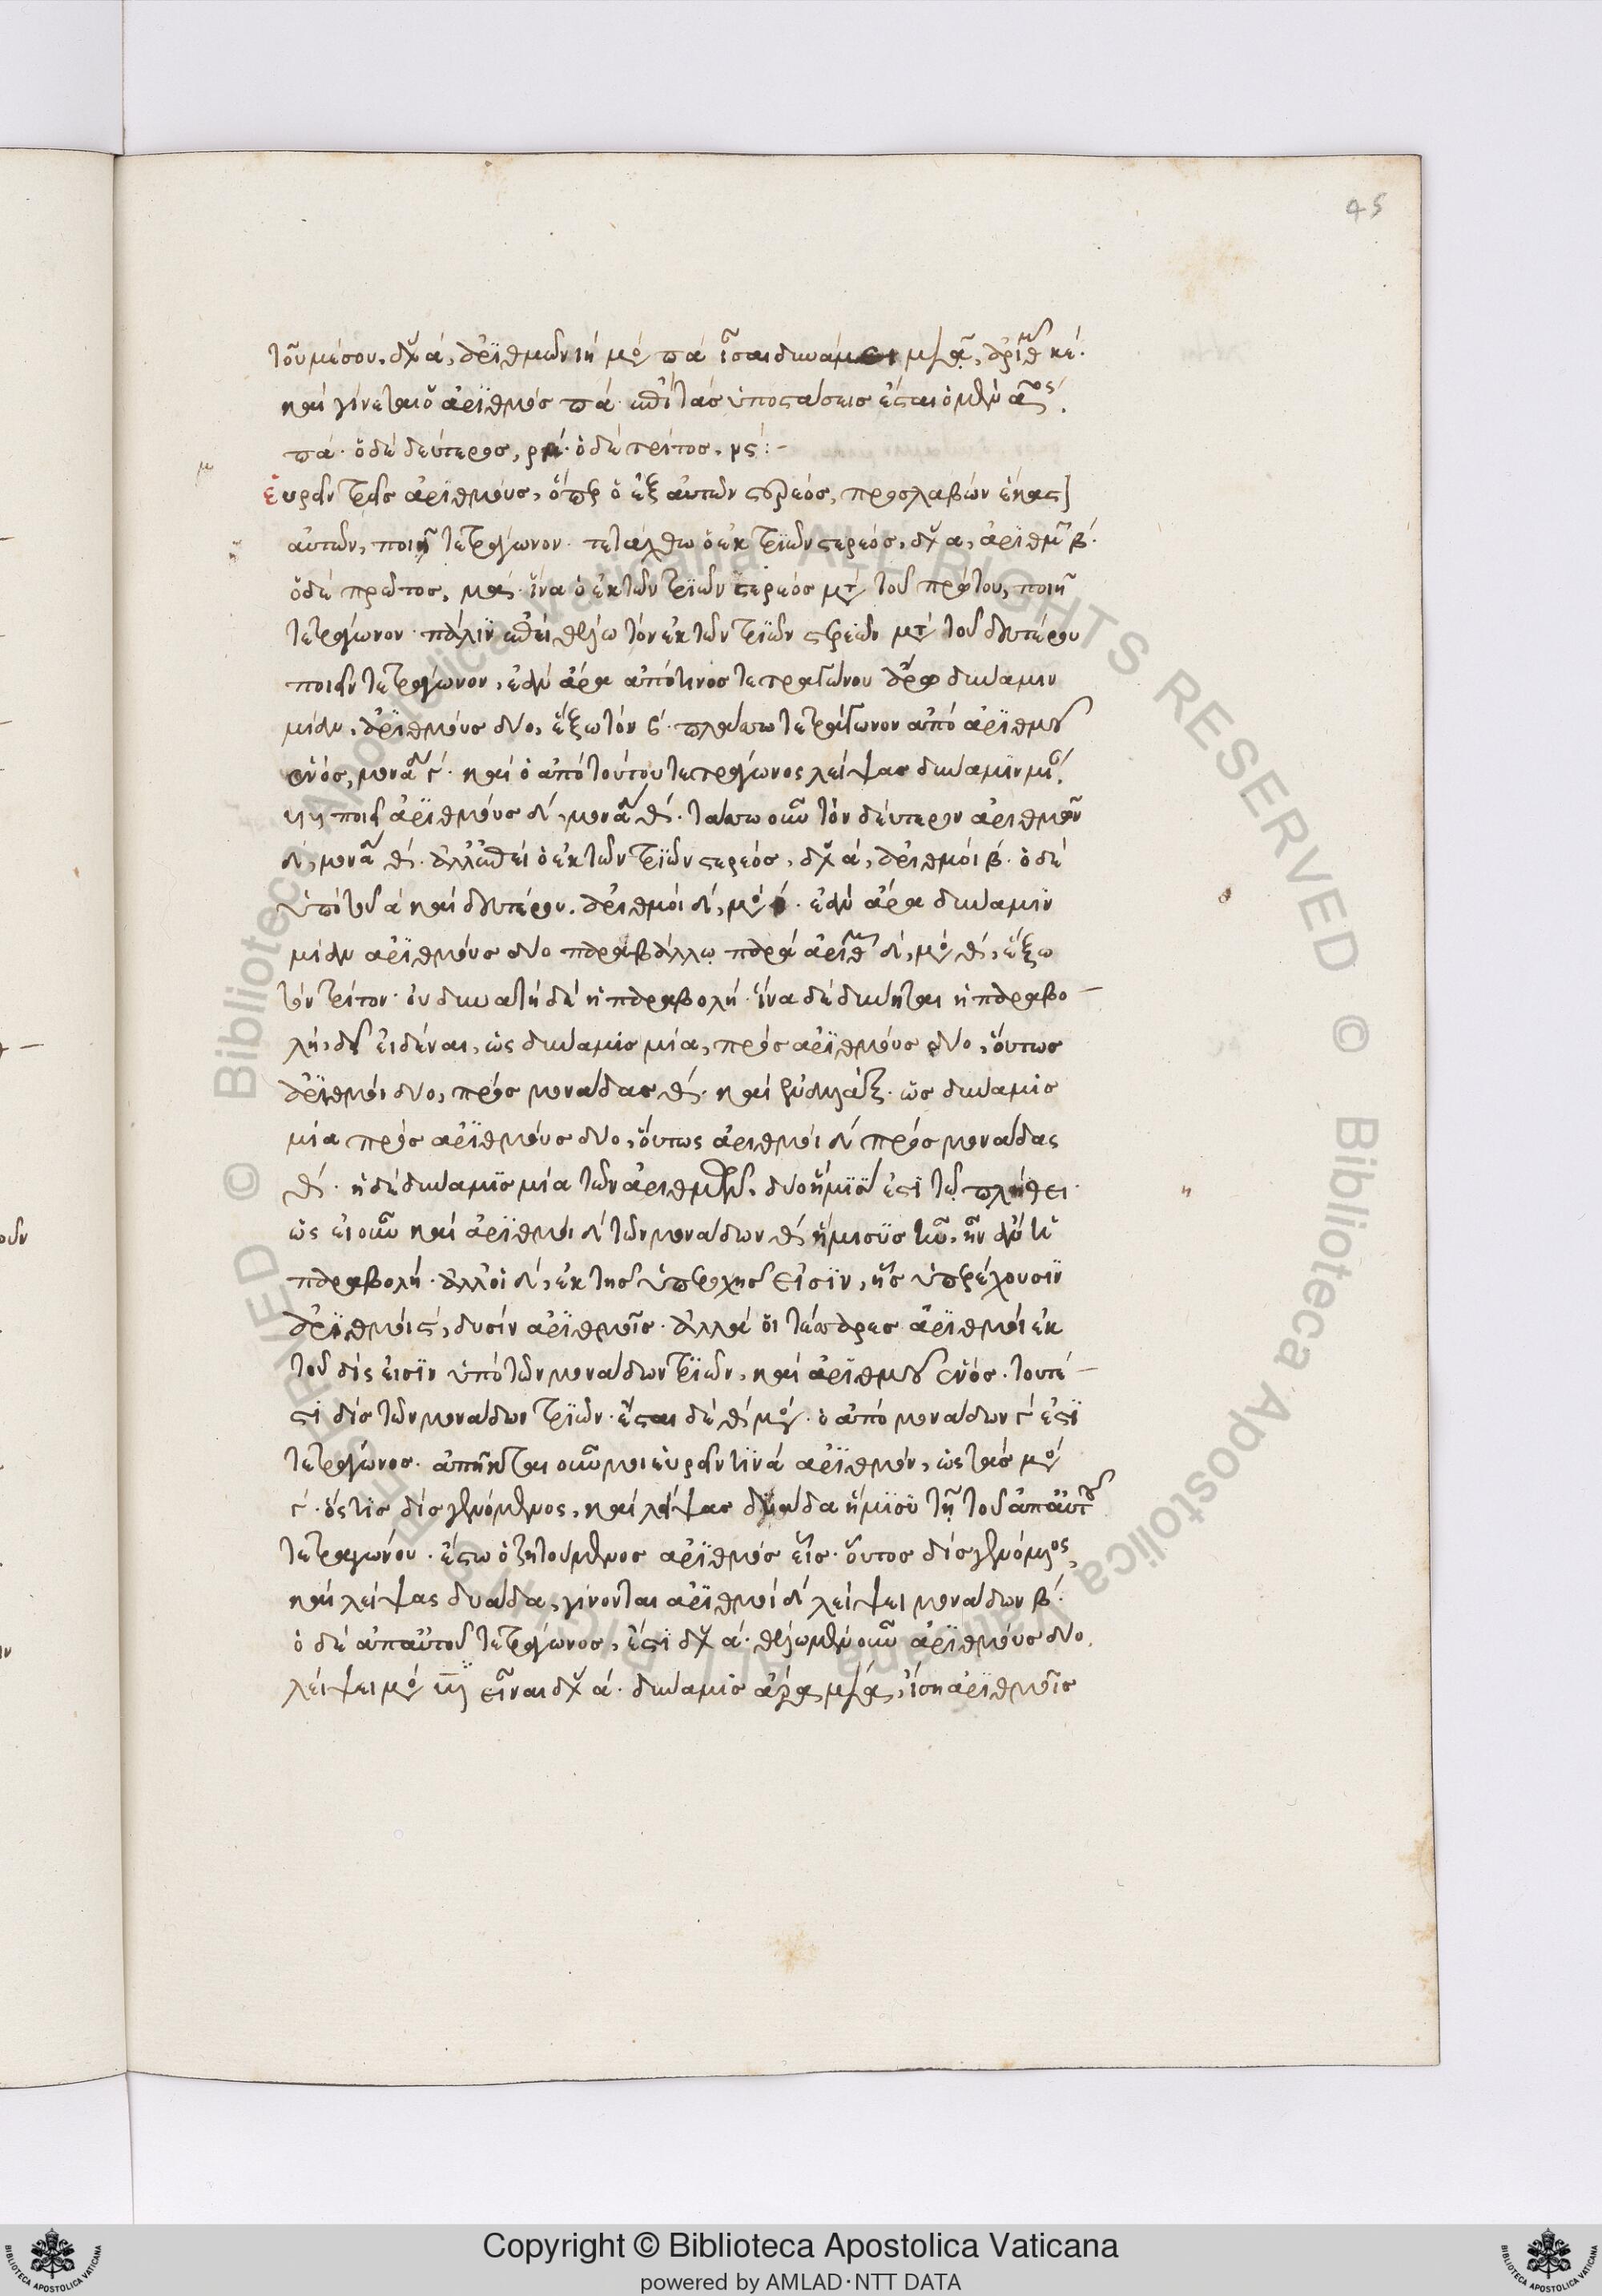 45
τοῦ μέσου. δυ ά, ἀριθμῶν ιή μο πά ἴσαι δυνάμει μιᾷ, ἀριθμ κέ.
καὶ γίνεται ὁ ἀριθμὸς πά. ἐπὶ τὰς ὑποστάσεις ἔσται ὁ μὲν αος.
πά. ὁ δὲ δεύτερος, ὁ δὲ τρίτος.
εὑρεῖν τρεῖς ἀριθμοὺς, ὅπερ ὁ ἐξ αὐτῶν στερεός, προσλαβὼν ἕκαστ]
αὐτῶν, ποιῇ τετράγωνον. τετάχθω ὁ ἐκ τριῶν στερεός, δυ α, ἀριθμ β.
ὁ δὲ πρῶτος, ἵνα ὁ ἐκ τῶν τριῶν στερεός μτ τοῦ πρώτου, ποιῇ
τετράγωνον. πάλιν ἐπεὶ θέλω τὸν ἐκ τῶν τριῶν στερεὸν μτ τοῦ δευτέρου
ποιεῖν τετράγωνον, ἐὰν ἄρα ἀπό τινος τετραγώνου ἄρω δύναμιν
μίαν, ἀριθμοὺς δύο, ἕξω τὸν β. πλάσσω τετράγωνον ἀπὸ ἀριθμοῦ
ἑνός, μονα γ. καὶ ὁ ἀπὸ τούτου τετράγωνος λείψας δύναμιν
ποιεῖ ἀριθμοὺς δ, μονα θ. τάσσω οὖν τὸν δεύτερον ἀριθμῶν
δ, μονα θ. ἀλλ᾽ ἐπεὶ ὁ ἐκ τῶν τριῶν στερεός, δυ ά, ἀριθμοί β. ὁ δὲ
ὑπὸ τοῦ ά καὶ δευτέρου. ἀριθμοί δ, μο θ. ἐὰν ἄρα δύναμιν
μίαν ἀριθμοὺς δύο παραβάλλω παρὰ ἀριθμ δ, μο θ, ἕξω
τὸν τρίτον. οὐ δυνατὴ δὲ ἡ παραβολή. ἵνα δὲ δύνηται ἡ παραβο–
λή, δεῖ εἰδέναι, ὡς δύναμις μία, πρὸς ἀριθμοὺς δύο, οὕτως
ἀριθμοὶ δύο, πρὸς μονάδας θ. καὶ ἐναλλάξ. ὡς δύναμις
μία πρὸς ἀριθμοὺς δύο, οὕτως ἀριθμοὶ δ πρὸς μονάδας
θ. ἡ δὲ δύναμις μία τῶν ἀριθμῶν δύο ἥμισυ ἐστὶ τῷ πλήθει.
ὡς εἰ οὖν καὶ ἀριθμοὶ δ τῶν μονάδων θ ἥμισυς ἦν, ἦν ἂν ἡ
παραβολή. ἀλλ᾽ οἱ δ, ἐκ τῆς ὑπεροχῆς εἰσίν, ἧς ὑπερέχουσιν
ἀριθμοί ϛ, δυσὶν ἀριθμοῖς. ἀλλὰ οἱ τέσσαρες ἀριθμοὶ ἐκ
τοῦ δίς εἰσιν ὑπὸ τῶν μονάδων τριῶν, καὶ ἀριθμοῦ ἑνός. τουτέ–
στι δὶς τῶν μονάδων τριῶν. ἔσται δὲ θ μο. ὁ ἀπὸ μονάδων γ ἐστὶ
τετράγωνος. ἀπῆκται οὖν μοι εὑρεῖν τινὰ ἀριθμὸν, ὡς τὰς μο
γ. ὅστις δὶς γενόμενος, καὶ λείψας δυάδα ἥμισυ τῇ τοῦ ἀπ᾽ αὐτοῦ
τετραγώνου. ἔστω ὁ ζητούμενος ἀριθμὸς εἷς. οὗτος δὶς γενόμενος,
καὶ λείψας δυάδα, γίνονται ἀριθμοὶ δ λείψει μονάδων β.
ὁ δὲ ἀπ᾽ αὐτοῦ τετράγωνος, ἐστὶ δυ ά. θέλομεν οὖν ἀριθμοὺς δύο
λείψει μο εἶναι δυ ά. δύναμις ἄρα μία, ἴση ἀριθμοῖς
Copyright © Biblioteca Apostolica Vaticana
powered by AMLAD·NTT DATA